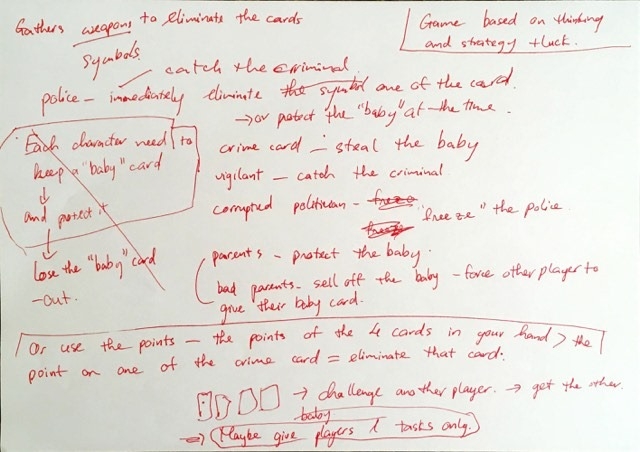 Gathers weapons to eliminate the cards
symbols.
Game based on thinking
and strategy + luck.
catch the criminal.
police - immediately eliminate the symbol one of the card.
→ or protect the "baby" at the time.
Each character need to
keep a "baby" card
↓
and protect it
↓
Lose the "baby" card
- out.
crime card - steal the baby
vigilant - catch the criminal.
corrupted politician - freeze
freeze "freeze" the police.
parents - protect the baby.
bad parents - sell off the baby - force other player to
give their baby card.
Or use the points - the points of the 4 cards in your hand > the
point on one of the crime card = eliminate that card.
→ challenge another player. → get the other.
baby
⇒ Maybe give players 1 tasks only.